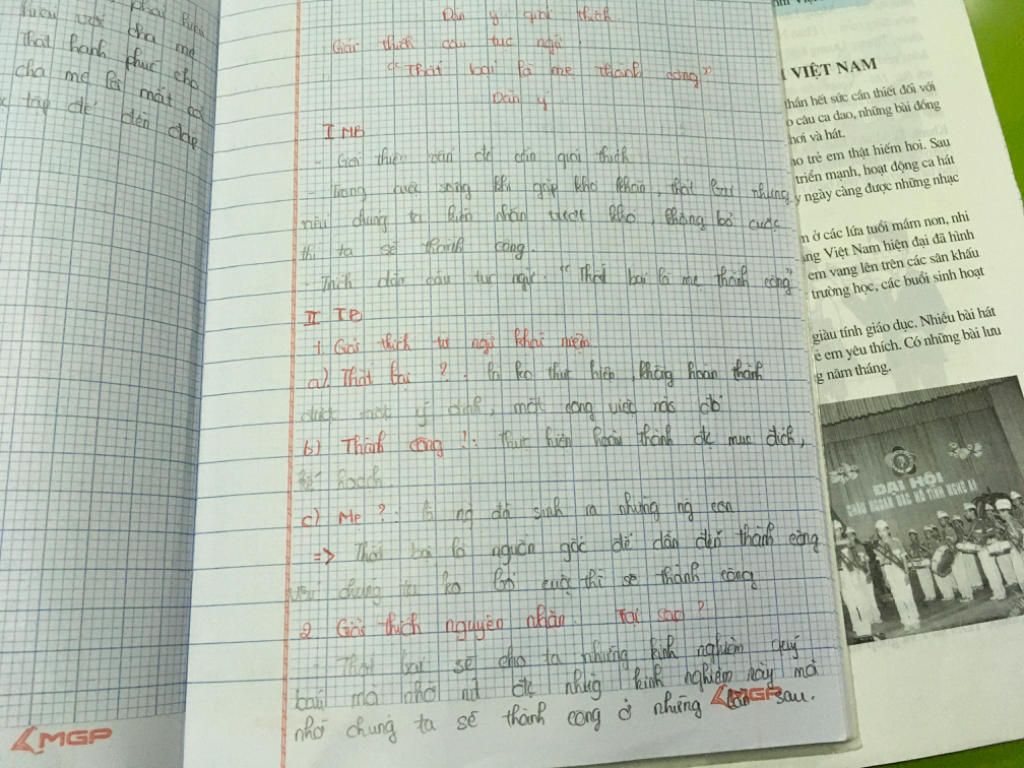 phải hiếu
hiếu với cha mẹ
Thật hạnh phúc cho
cha mẹ lại mất
tập để đền đáp
MGP
Dàn ý giải thích
Giải thích câu tục ngữ
"Thất bại là mẹ thành công"
Dàn ý
I MB
- Giới thiệu vấn đề cần giải thích
- Trong cuộc sống khi gặp khó khăn, thất bại nhưng
nếu chúng ta kiên nhẫn vượt khó, không bỏ cuộc
thì ta sẽ thành công.
- Trích dẫn câu tục ngữ: "Thất bại là mẹ thành công"
II TB
1. Giải thích từ ngữ khái niệm
a) Thất bại ?: là ko thực hiện, không hoàn thành
được một ý định, một công việc nào đó
b) Thành công ?: thực hiện hoàn thành đc mục đích,
kế hoạch
c) Mẹ ?: là ng đã sinh ra những ng con
=> Thất bại là nguồn gốc để dẫn đến thành công
chúng ta ko bỏ cuộc thì sẽ thành công
2 Giải thích nguyên nhân. Tại sao?
Thất bại sẽ cho ta những kinh nghiệm quý
báu mà nhờ nó đc những kinh nghiệm này mà
nhờ chúng ta sẽ thành công ở những lần sau.
MGP
VIỆT NAM
thần hết sức cần thiết đối với
câu ca dao, những bài đồng
hơi và hát.
trẻ em thật hiếm hoi. Sau
triển mạnh, hoạt động ca hát
y ngày càng được những nhạc
ở các lứa tuổi mầm non, nhi
Việt Nam hiện đại đã hình
em vang lên trên các sân khấu
trường học, các buổi sinh hoạt
giàu tính giáo dục. Nhiều bài hát
em yêu thích. Có những bài lưu
năm tháng.
ĐẠI HỘI
CHÁU NGOAN BÁC HỒ TỈNH NGHỆ AN